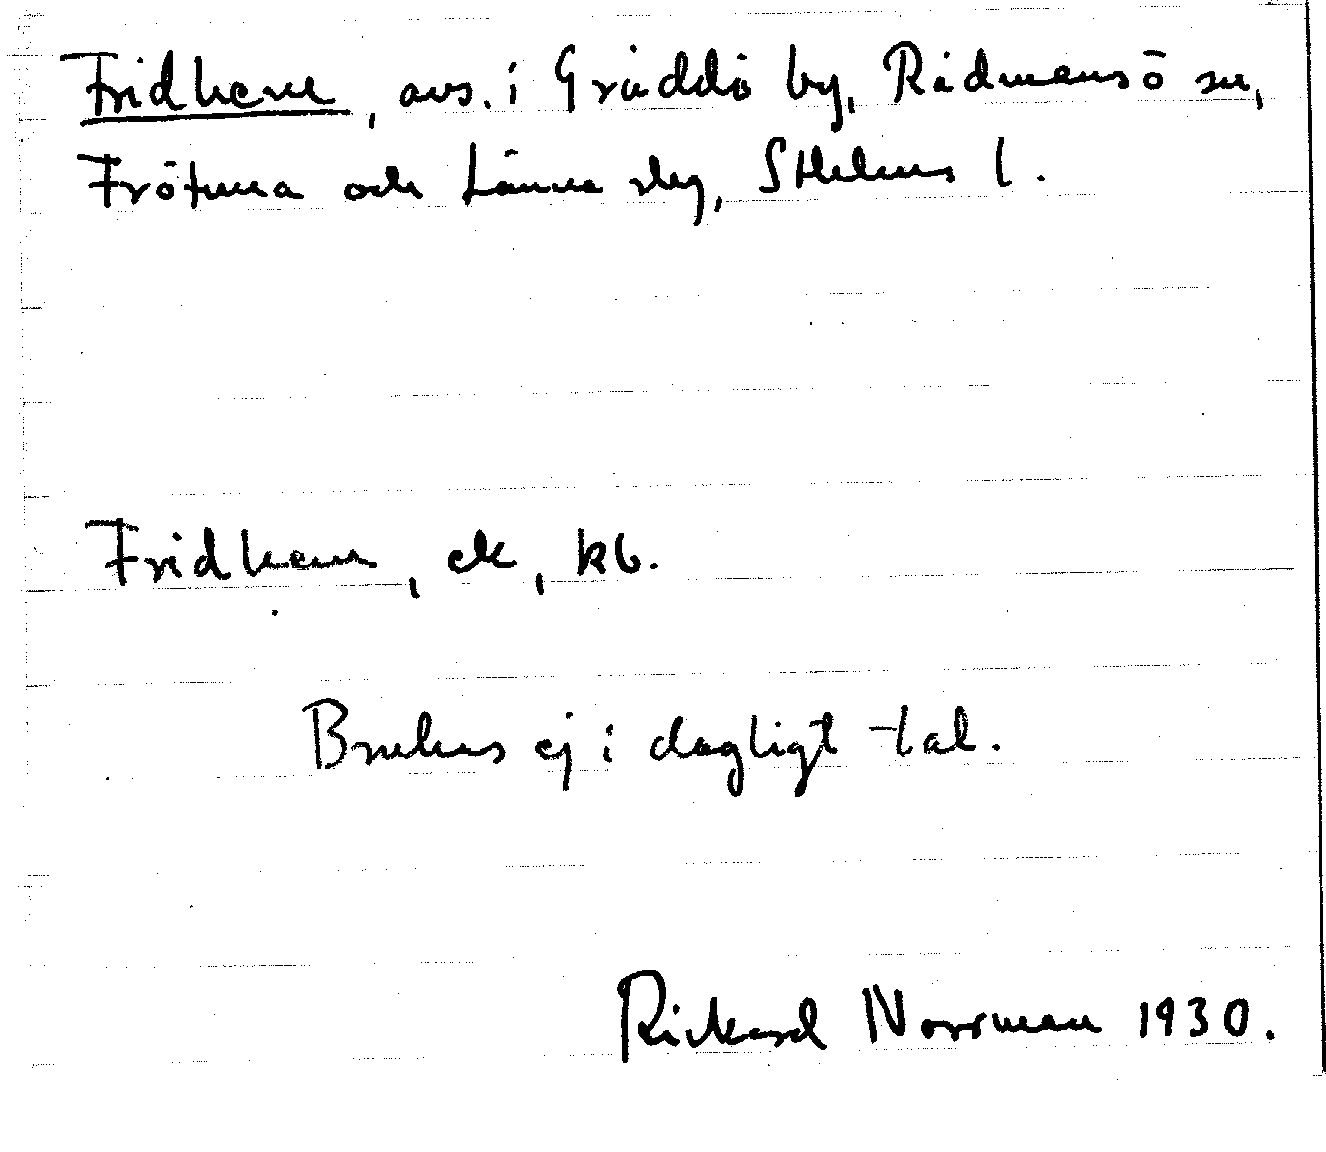 Fridhem, avs. i Gräddö by, Rådmansö sn,
Frötuna och Länna slg, Sthlms l.
Fridhem, ek, kb.
Brukas ej i dagligt tal.
Rickard Norrman 1930.